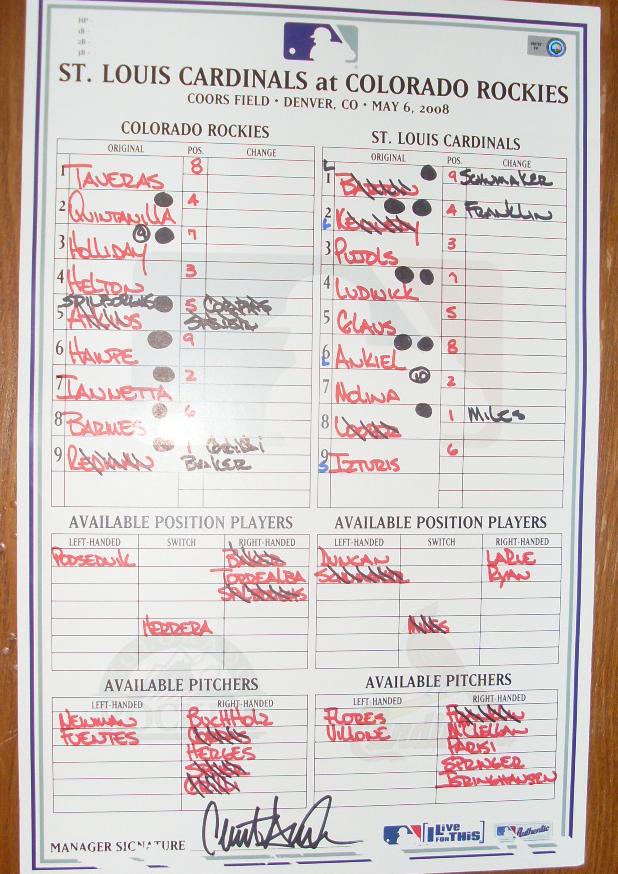 HP -
ST. LOUIS CARDINALS at COLORADO ROCKIES
COORS FIELD • DENVER, CO • MAY 6, 2008
COLORADO ROCKIES
ORIGINAL POS. CHANGE
1 TAVERAS 8
2 QUINTANILLA 4
3 HOLLIDAY 9 7
4 HELTON 3
SPILBORGHS
5 ATKINS 5
6 HAWPE 9
7 IANNETTA 2
8 BARMES 6
9 REDMAN 1
BAKER
ST. LOUIS CARDINALS
ORIGINAL POS. CHANGE
L
1 9 SCHUMAKER
2 KENNEDY 4 FRANKLIN
L
3 PUJOLS 3
4 LUDWICK 7
5 GLAUS 5
6 ANKIEL 8
L
7 MOLINA 10 2
8 1 MILES
9 IZTURIS 6
S
AVAILABLE POSITION PLAYERS
LEFT-HANDED SWITCH RIGHT-HANDED
PODSEDNIK BAKER
TORREALBA
HERRERA
AVAILABLE POSITION PLAYERS
LEFT-HANDED SWITCH RIGHT-HANDED
DUNCAN LARUE
RYAN
MILES
AVAILABLE PITCHERS
LEFT-HANDED RIGHT-HANDED
NEWMAN BUCHHOLZ
FUENTES
HERGES
AVAILABLE PITCHERS
LEFT-HANDED RIGHT-HANDED
FLORES
VILLONE McCLELLAN
PARISI
SPRINGER
ISRINGHAUSEN
MANAGER SIGNATURE
I Live FOR THIS!
Authentic